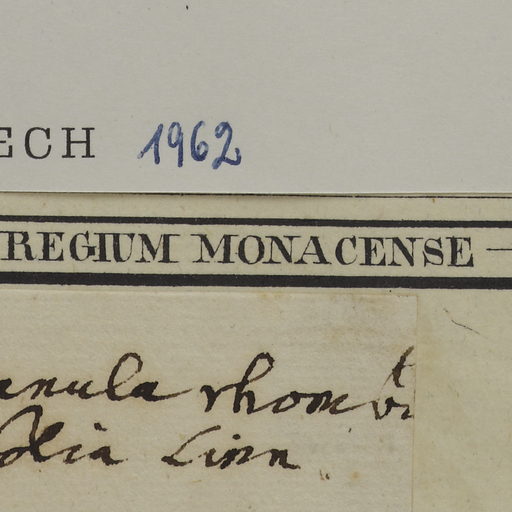 ECH 1962
REGIUM MONACENSE
anula rhombi
folia Linn